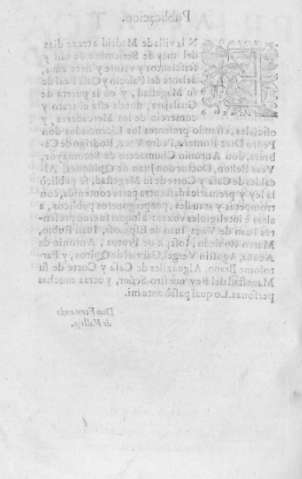 Publicacion.
EN la villa de Madrid a treze dias
del mes de Setiembre de mil y
seiscientos y veinte y siete años,
delante del Palacio y Casa Real de
su Magestad, y en la puerta de
Guadalajara, donde està el trato y
comercio de los Mercaderes, y
oficiales, estando presentes los Licenciados don
Pedro Diaz Romero, Pedro Vaez, Rodrigo de Ca-
brera, don Antonio Chumacero de Sotomayor,
Doctor don Juan de Quiñones, Al-
caldes de Casa y Corte de su Magestad, se publicò
la ley y prematica desta otra parte contenida, con
trompetas y atabales, por pregoneros publicos, a
altas e inteligibles vozes: a lo qual fueron presen-
tes Juan de Vega, Juan de Espinosa, Juan Rubio,
Marco
Agustin Vega,
Alguaziles de Casa y Corte de su
Magestad del Rey nuestro Señor, y otras muchas
personas. Lo qual passò ante mi.
Don Fernando
de Vallejo.